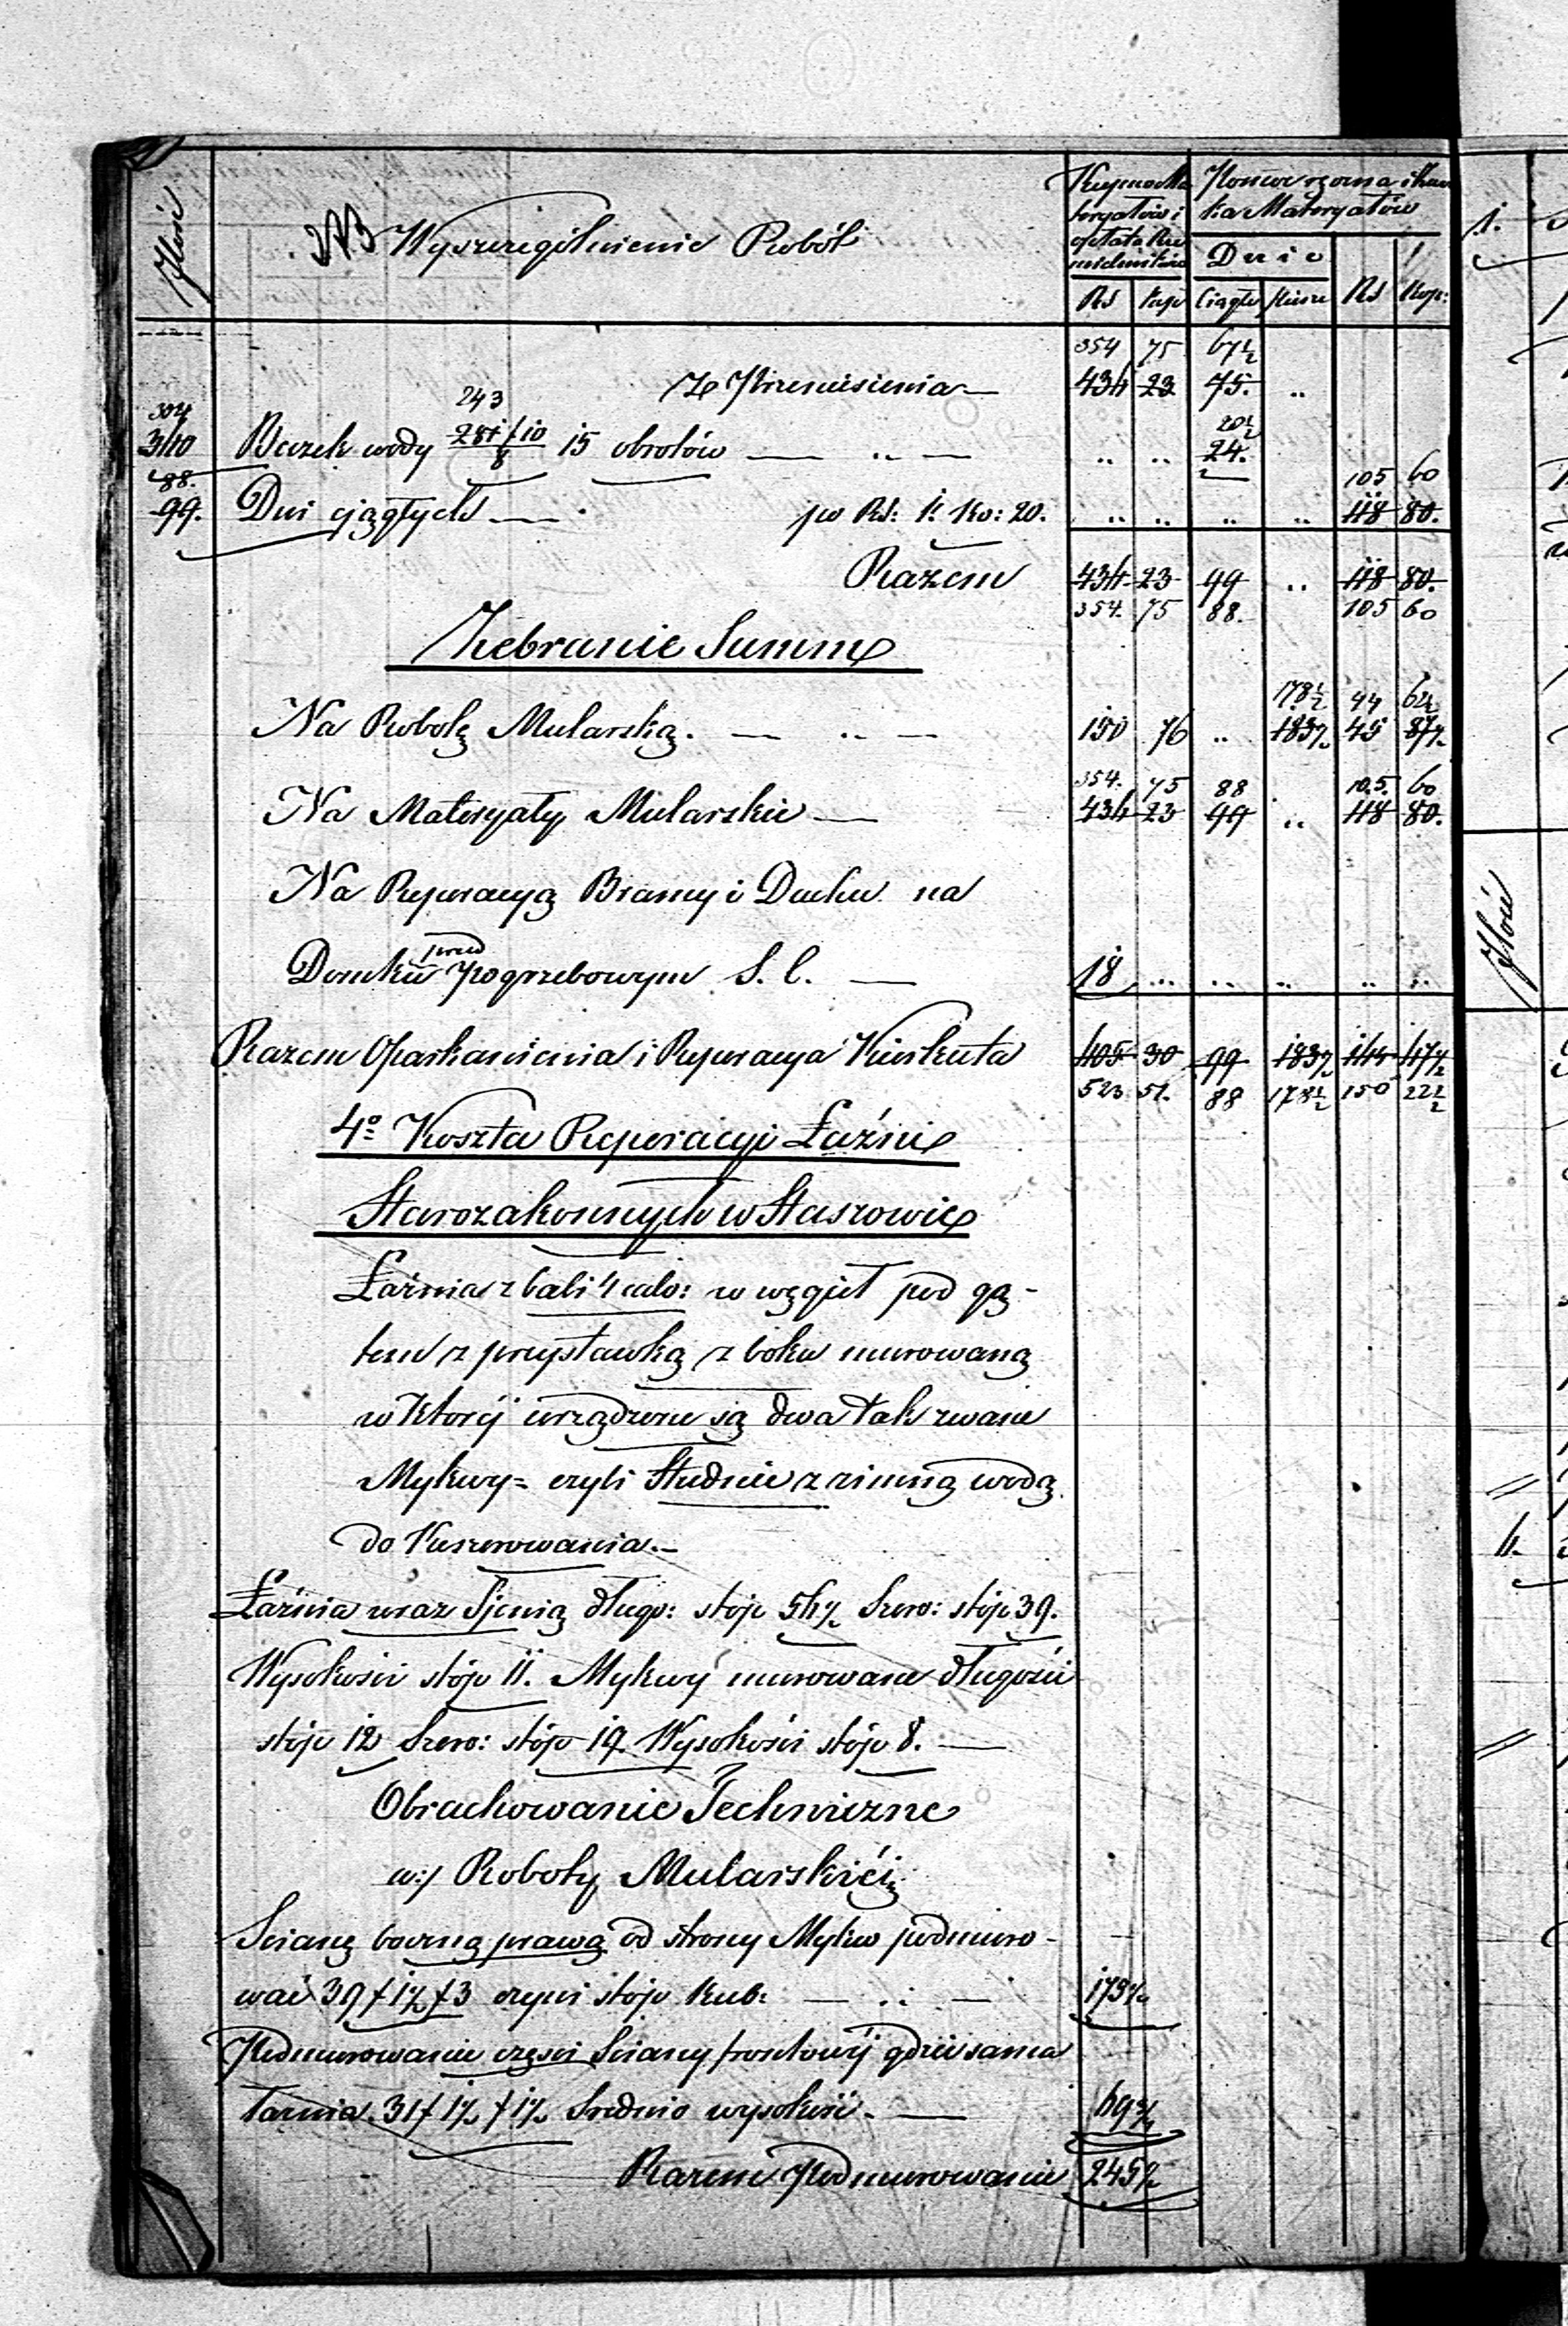 Ilość
Wyszczególnienie Robót
Kupno Ma
teryałów i
opłata Rze
mieślników
ka Materyałów
Dnie
Rs Kop Ciągłe Piesze Rs Kop:
354 75 67½
Z Przeniesienia — 434 23 75. ..
304 243 20½
340 Beczek wody 281/10 8 15 obrotów — .. — .. .. 24.
88. 105 60
99. Dni ciągłych — po Rs: 1. Ko: 20. .. .. .. .. 118 80.
Razem 434 23 99 .. 118 80.
354. 75 88. 105 60
Zebranie Summ
178½ 44 62½
Na Robotę Mularską. — .. — 150 76 .. 183½ 45 87½
354. 75 88 105. 60
Na Materyały Mularskie — 434 23 99 .. 118 80.
Na Reperacyą Bramy i Dachu na
przed
Domku Pogrzebowym S. C. — 18 .. .. .. .. ..
Razem Oparkanienia i Reperacya Kierkuta 405 30 99 183½ 145 47½
523 51. 88 178½ 150 22½
4o Koszta Reperacyi Łaźni
Starozakonnych w Staszowie
Łaźnia z bali 4 calo: w węgieł pod gą-
tem z przystawką z boku murowaną
w której urządzone są dwa tak zwane
Mykwy = czyli Studnie z zimną wodą
do Kuszerowania. —
Łaźnia wraz Sienią długo: stóp 54½ Szero: stóp 39.
Wysokości stóp 11. Mykwy murowane długości
stóp 12 Szero: stóp 19. Wysokości stóp 8. —
Obrachowanie Techniczne
a:/ Roboty Mularskiéj
Scianę boczną prawą od strony Mykw podmuro-
wać 39 † 1½ † 3 czyni stóp kub: — .. — 175½
Podmurowanie części Sciany frontowéj gdzie sama
łaźnia. 31 † 1½ † 1½ Srednio wysokość. — 69¾
Razem Podmurowanie 245¼
Ilość